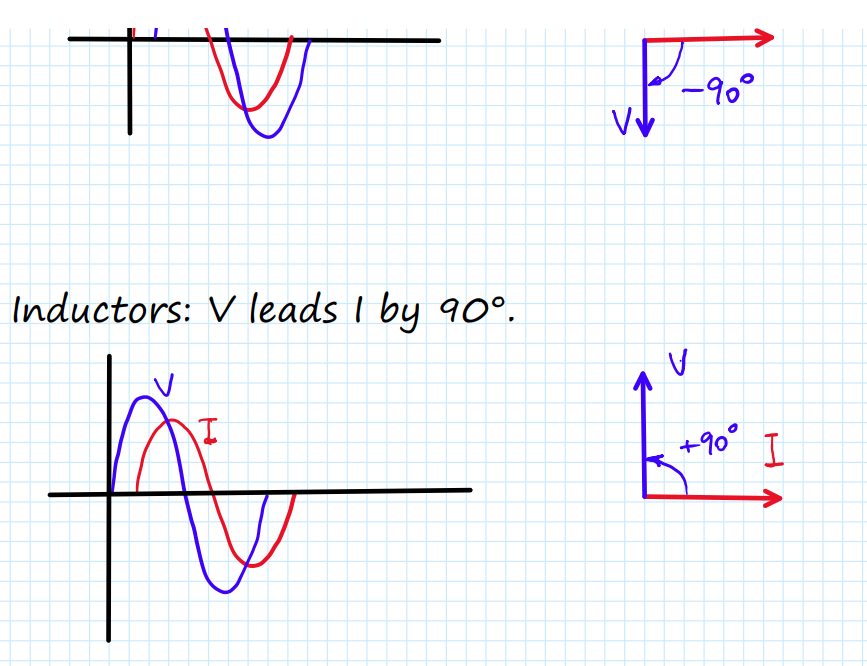 -90°
V
Inductors: V leads I by 90°.
V
I
V
+90°
I